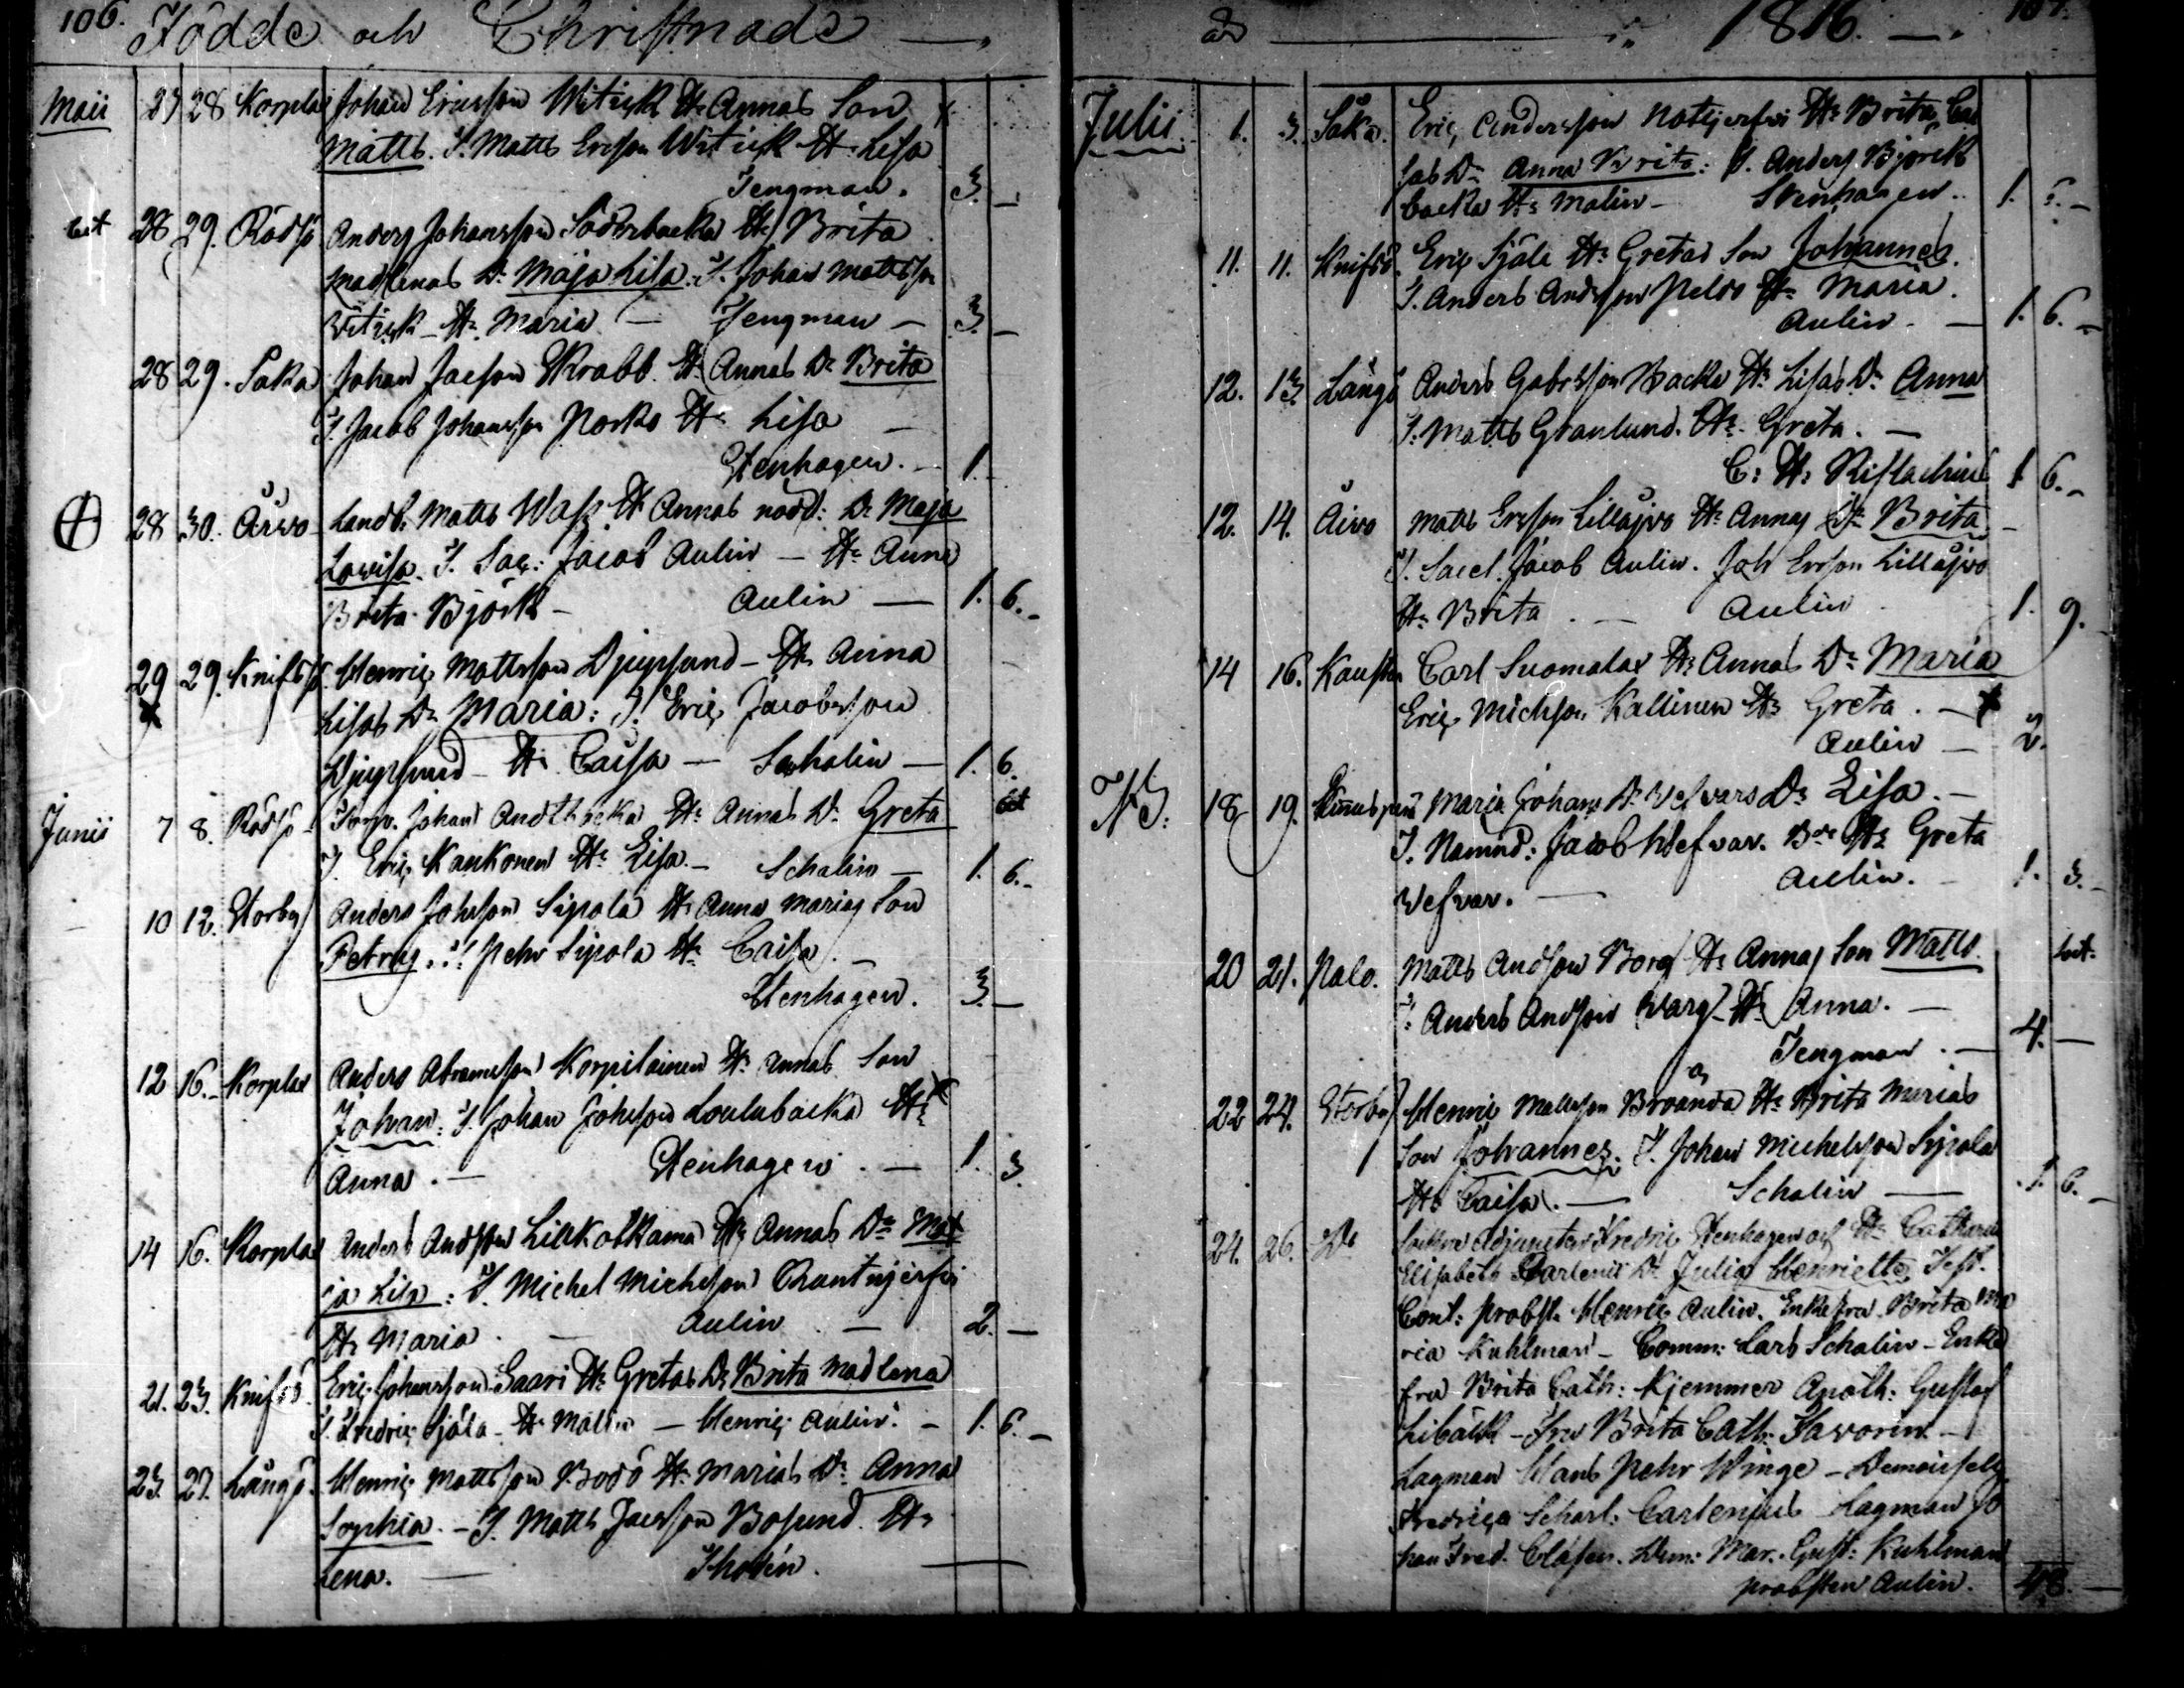 106. Födde och Christnade —
Maii 27 28 Korplax Johan Ericsson Witick H: Annas Son
Matts. T. Matts Ersson Witick H: Lisa
Tengman. 3. —
bet 28 29. Rödsö Anders Johansson Söderbacka H: Brita
Madlenas D: Maja Lisa. T. Johan Mattsson
Witick H: Maria — Tengman — 3. —
28 29. Saka Johan Jacsson Skrabb H: Annas D: Brita
T. Jacob Johansson Porko H: Lisa —
Stenhagen. — 1.
28 30. Åivo Landb: Matts Wass H: Annas nödd: D: Maja
Lovisa. T. Sac: Jacob Aulin — H: Anna
Brita Björk — Aulin — 1. 6. -
29 29. Knifsö Henric Mattsson Djupsund — H: Anna
Lisas D: Maria: T. Eric Jacobsson
Djupsund — H: Caisa — Schalin — 1. 6.
Junii 7 8. Rödsö Johan Andtbacka H: Annas D: Greta bet
T. Eric Kaukonen H: Lisa — Schalin — 1. 6. -
10 12. Storby Anders Johsson Sipola H: Anna Marias Son
Petrus. T. Pehr Sipola H: Caisa. —
Stenhagen. 3. —
12 16. Korplax Anders Abramsson Korpilainen H: Annas Son
Johan: T. Johan Johsson H:
Anna. — Stenhagen. — 1. 3.
14 16. Korplax Anders Andsson Lillkotkama H: Annas D: Ma
ja Lisa: T. Michel Michelsson
H: Maria. — Aulin. — 2. —
21. 23. Knifsö. Eric Johansson Saari H: Gretas D: Brita Madlena
T. Fredric Själa H: Malin — Henric Aulin. — 1. 6. —
23. 27. Långö. Henric Mattsson Bodö H: Marias D: Anna
Sophia. — T. Matts Jacsson Bosund. H:
Lena. — Thodén. —
1816. — 107.
Julii. 1. 3. Saka. Eric Andersson H: Brita Cai
sas D: Anna Brita: T. Anders Björk
backa H: Malin — Stenhagen. 1. 6. -
11. 11. Knifsö. Eric Själa H: Gretas Son Johannes.
T. Anders Andersson Pelo H: Maria.
Aulin. — 1. 6. -
12. 13 Långö Anders Gabrsson Backa H: Lisas D: Anna
T. Matts Granlund. H: Greta. —
C: H: Ristlachius 1 6. -
12. 14. Åivo Matts Ersson Lillåjvo H: Annas D: Brita —
T. Sacel. Jacob Aulin. Joh Ersson Lillåjvo
H: Brita. — Aulin 1. 9.
14 16. Kaustar Carl Suomalax H: Annas D: Maria
Eric Michsson Kallinen H: Greta. —
Aulin — 2.
NB: 18 19. Maria Johans D: Wefvars D: Lisa. —
T. Nämnd: Jacob Wefvar. H: Greta
Wefvar. — Aulin. — 1. 3. -
20 21. Palo. Matts Andsson Borg H: Annas Son Matts. bet.
T: Anders Andsson Warg H: Anna. —
Tengman. — 4. —
22 24. Storby Henric Mattsson Broända H: Brita Marias
Son Johannes. T. Johan Michelsson Sipola
H: Caisa. — Schalin — 1. 6. —
24. 26. D: Sockne Adjuncten Fredric Stenhagen och H: Catharina
Elisabeth Carlenii D: Julia Henrietta. Test.
Cont: probst. Henric Aulin. Enkefru Brita Ma
ria Kuhlman — Comm: Lars Schalin — Enke
fru Brita Cath: Kjemmer Apoth: Gustaf
Libäck — Fru Brita Cath: Favorin —
Lagman Hans Pehr Winge — Demoiselle
Fredrica Scharl: Carlenius Lagman Jo
han Fred. Clasen. Dem: Mar. Gust: Kuhlman
probsten Aulin. 48. —